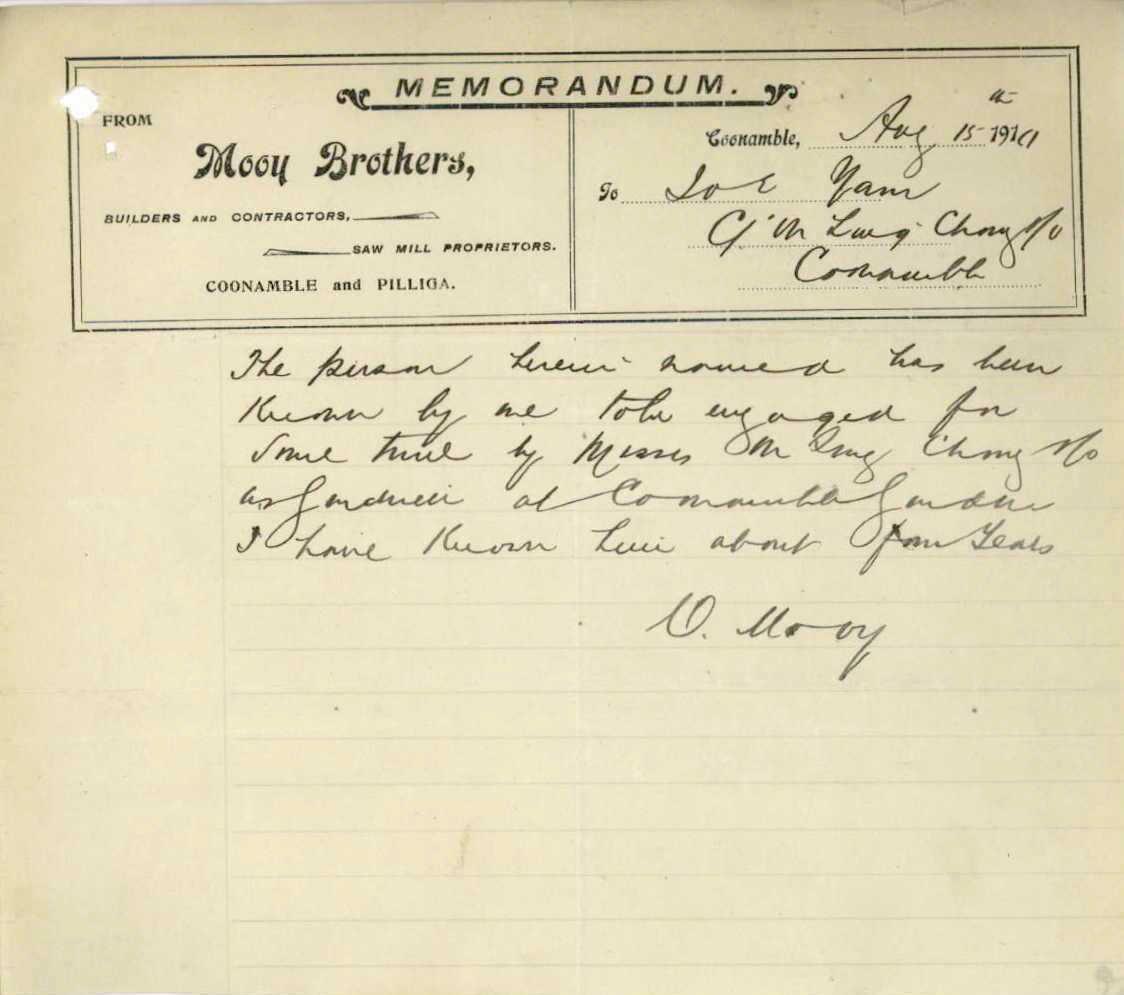 MEMORANDUM.
FROM
Mooy Brothers,
BUILDERS AND CONTRACTORS,
SAW MILL PROPRIETORS.
COONAMBLE and PILLIGA.
Coonamble, Aug 15th 1911
To Joe Yam
C/ On Lung Chong &Co
Coonamble
The person herein named has been
Known by me to be engaged for
Some time by Messrs On Lung Chong &Co
as Gardener at Coonamble Garden
I have Known him about four Years
O. Mooy